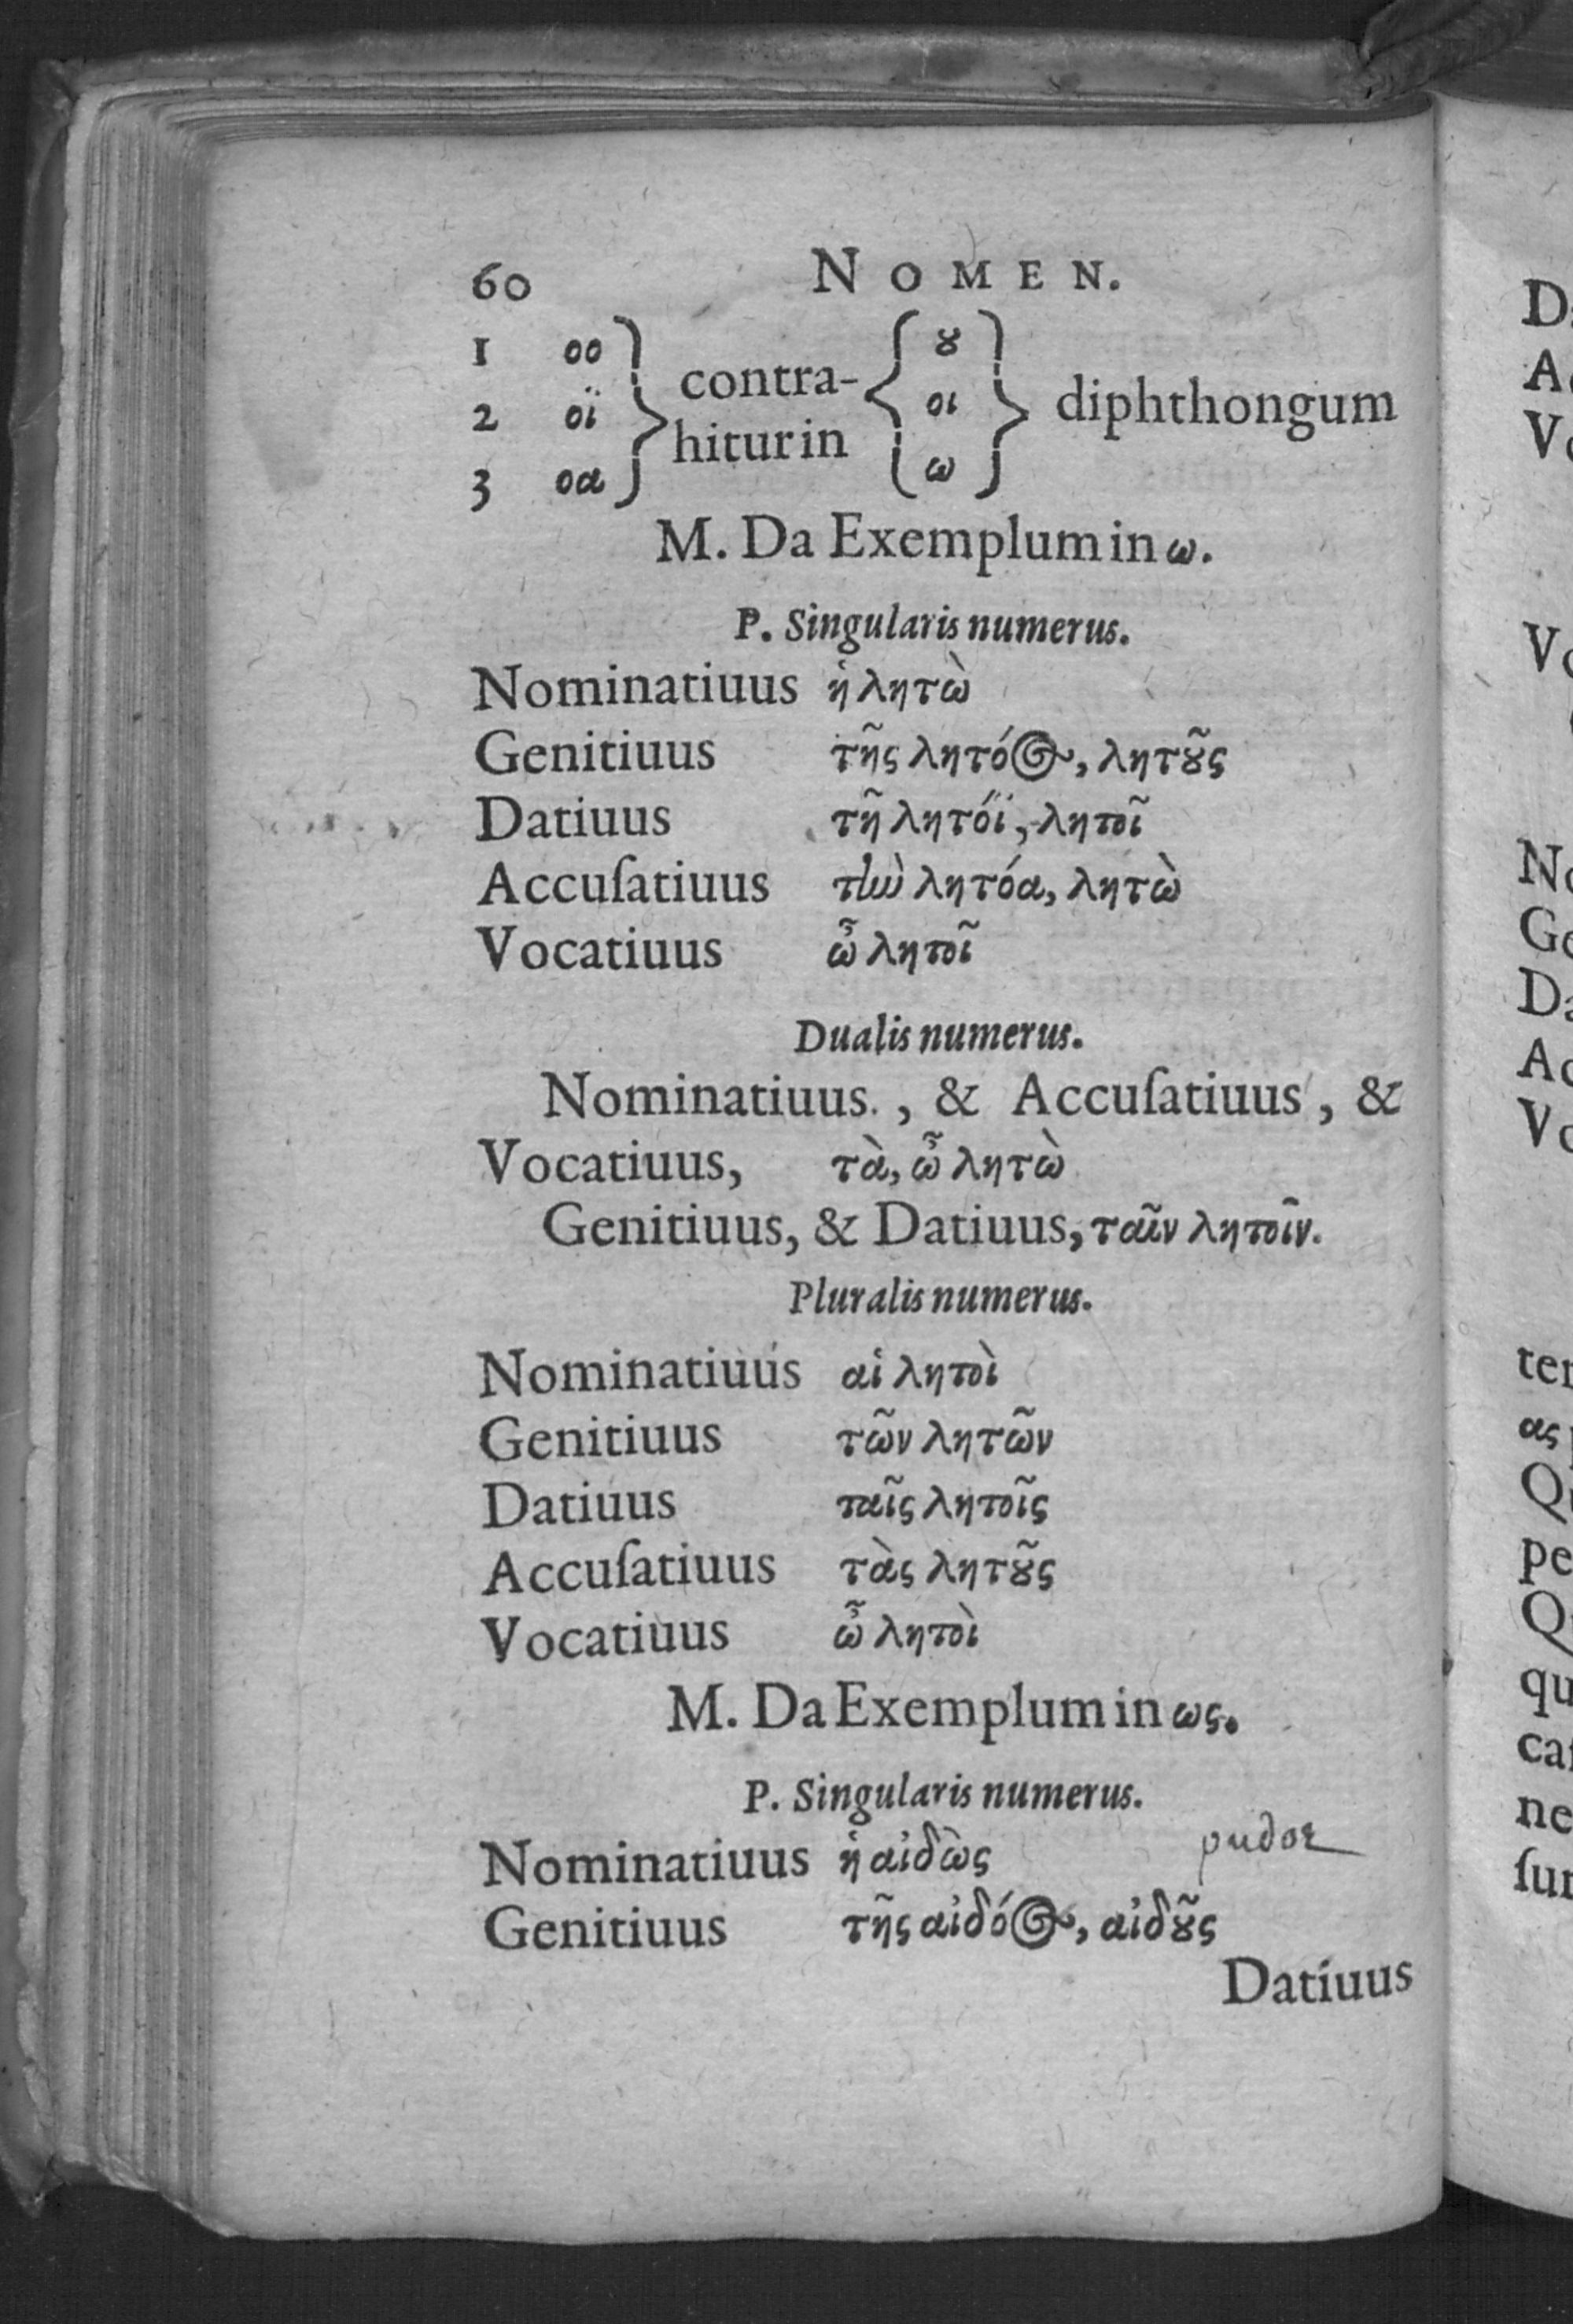 60 NOMEN.
1 οο ȣ
contra-
2 οϊ οι diphthongum
hitur in
3 οα ω
M. Da Exemplum in ω.
P. Singularis numerus.
Nominatiuus ἡ λητὼ
Genitiuus τῆς λητό<unk>, λητȣ͂ς
Datiuus τῆ λητόϊ, λητοῖ
Accuſatiuus τὴν λητόα, λητὼ
Vocatiuus ὦ λητοῖ
Dualis numerus.
Nominatiuus., & Accuſatiuus, &
Vocatiuus, τὰ, ὦ λητὼ
Genitiuus, & Datiuus, ταῖν λητοῖν.
Pluralis numerus.
Nominatiuus αἱ λητοὶ
Genitiuus τῶν λητῶν
Datiuus ταῖς λητοῖς
Accuſatiuus τὰς λητȣ͂ς
Vocatiuus ὦ λητοὶ
M. Da Exemplum in ως.
P. Singularis numerus.
Nominatiuus ἡ αἰδὼς pudor
Genitiuus τῆς αἰδόος, αἰδȣ͂ς
Datiuus